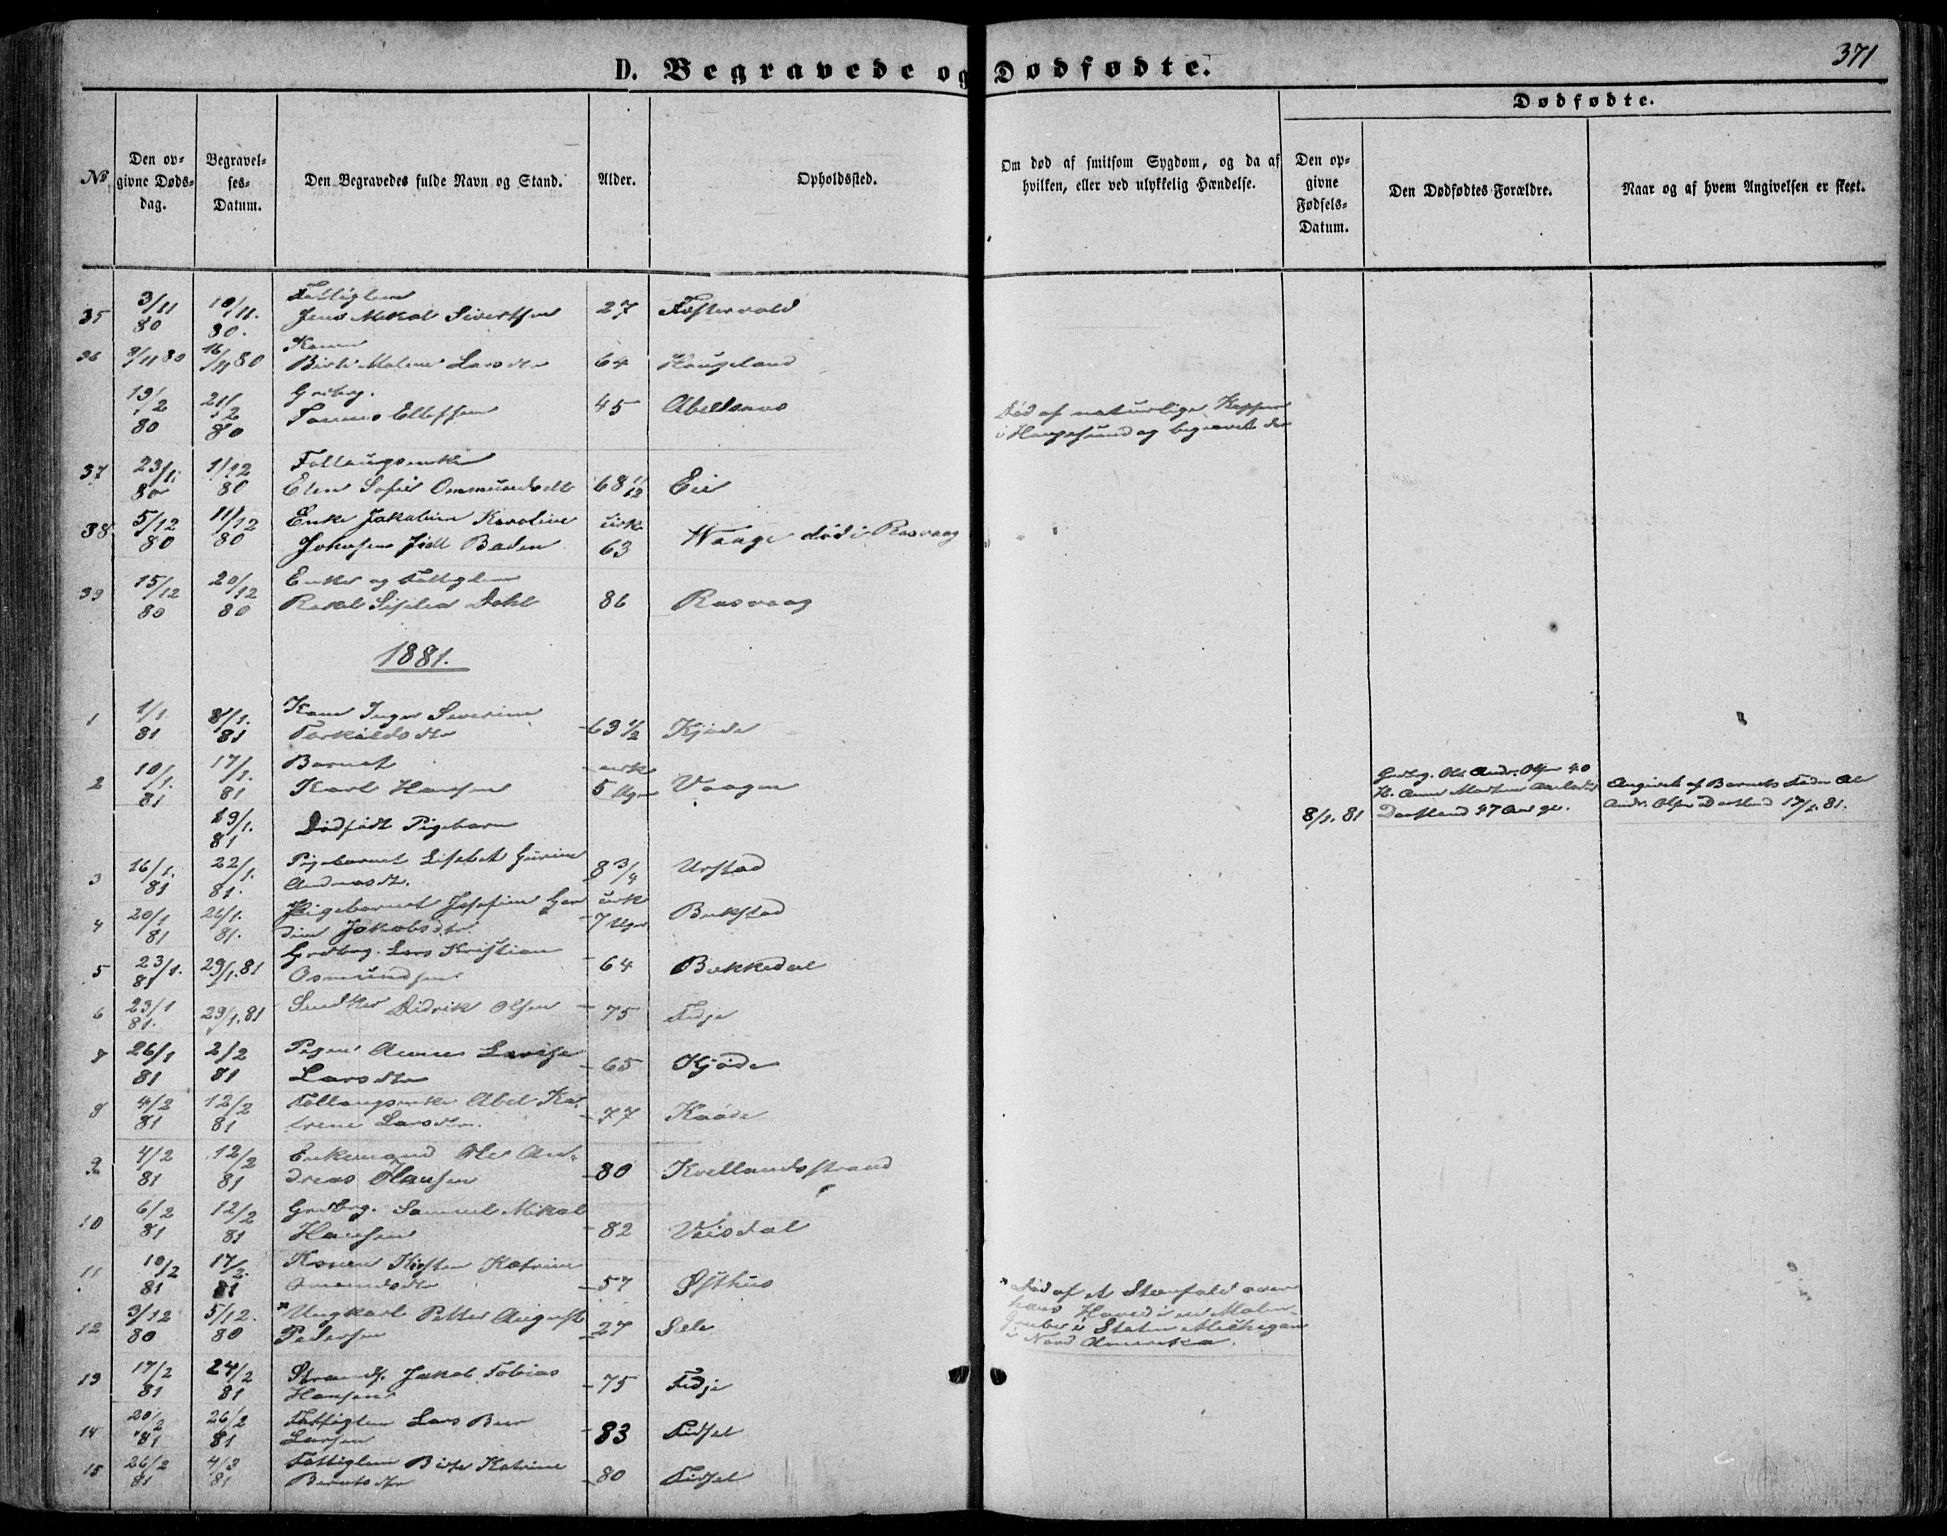 371
D. Begravede og Dødfødte.
Dødfødte.
No
Den op-
givne Døds-
dag.
Begravel-
ses-
Datum.
Den Begravedes fulde Navn og Stand.
Alder.
Opholdssted.
Om død af smitsom Sygdom, og da af
hvilken, eller ved ulykkelig Hændelse.
Den op-
givne
Fødsels-
Datum.
Den Dødfødtes Forældre.
Naar og af hvem Angivelsen er skeet.
35 3/11 80 10/11. 80. Fattiglem
Jens Mekal Sivertsen 27
36 9/11 80 16/11 80 Konen
Malene Larsdtr 64 Haugeland
19/2 80 21/2 80 Grdbrg.
Tønnes Ellefsen 45 Abelsnes Død af naturlige Kopper
i Haugesund og begravet der
37 23/11 80 1/12 80 Follaugsenke
Elen Sofie Ommundsdtr 68 1/12 Eie
38. 5/12 80 11/12 80 Enke Jakobine Karoline cirk
Johnsen født Baden 63 Waage død i Rasvaag
39 15/12 80 20/12 80 Enke og Fattiglem
Rakel Dahl 86 Rasvaag
1881.
1 1/1 81 8/1. 81 Kone Inger Severine
Torkildsdtr 63 1/2 Kjøde
2 10/1. 81 17/1. 81 Barnet cirk
Karl Hansen 5 Uger Vaagen
19/1. 81 Dødfødt Pigebarn 8/1. 81
Grdbrg. Ole Andr. Olsen 40
H. Anne Martine
47 Aar gl.
Angivet af Barnets Fader Ole
Andr. Olsen 17/1. 81.
3 16/1. 81 22/1. 81. Pigebarnet Lisebet Gurine
Andreasdtr. 8 3/4 Urstad
4 20/1 81 26/1. 81. Pigebarnet Josefine Gar cirk
dine Jakobsdtr. 7 Uger Bukstad
5 23/1. 81 29/1. 81 Grdbrg. Lars Kristian
Osmundsen 64 Bukkedal
6 23/1 81. 29/1. 81 Didrik Olsen 75 Fedje
7 26/1 81 2/2 81 Pigen Anne Lovise
Larsdtr 65 Kjøde
8 4/2 81 12/2 81 Follaugsenke Abel Ka-
trine Larsdtr. 77 Kaade
9 4/2 81 12/2 81 Enkemand Ole An-
dreas Hansen 80 Kvellandsstrand
10 6/2 81 12/2 81 Grdbrg. Samuel Mikal
Hansen 82 Veisdal
11 10/2 81 17/2. 81 Konen Kirsten Katrine
Omundsdtr 57 Østhus
12 3/12 80 5/12. 80 * Ungkarl Petter August
Pedersen 27 Sele
* Død af et Steenfald over
hans Hoved i en Malm-
Grube i Staten Michegan
i Nord Amerika.
13 17/2 81 24/2 81 Strands. Jakob Tobias
Hansen 75 Fedje
14 20/2 81 26/2 81 Fattiglem Lars Beer
Larsen 83 Fidsel
15 26/2 81 4/3 81 Fattiglem Birte Katrine
Berntsdtr 80 Fidsel